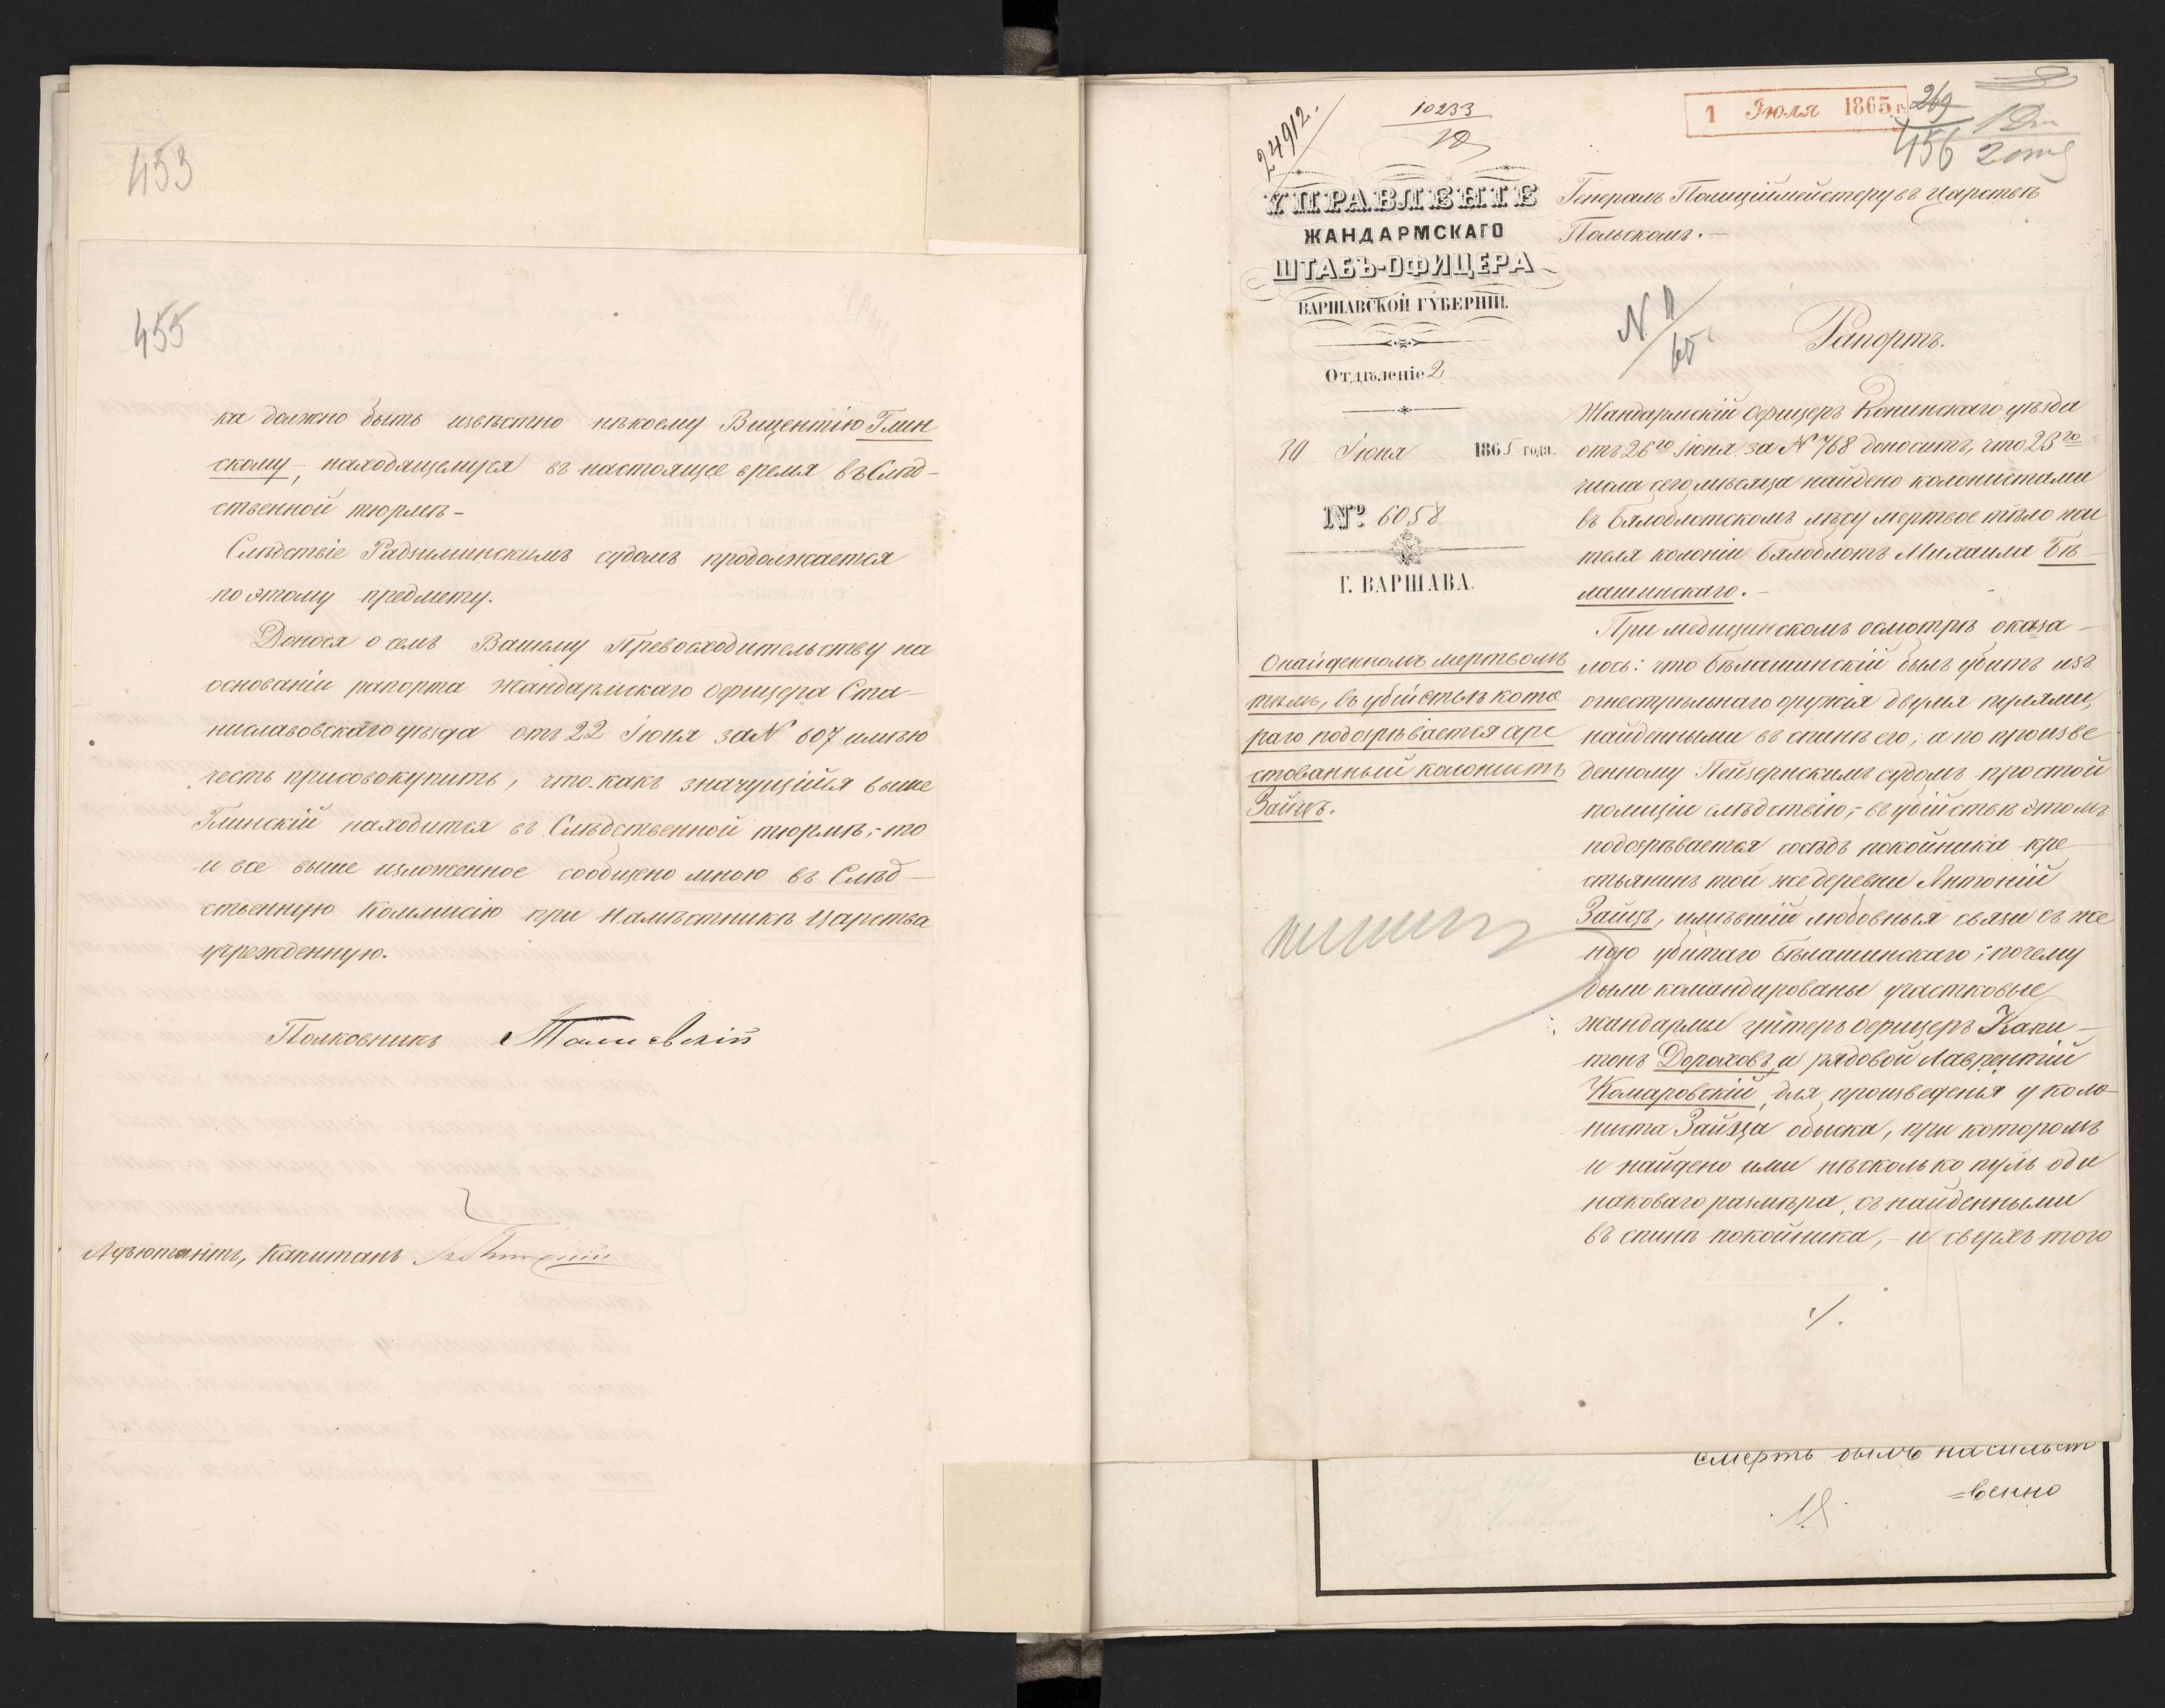 453
455
ка должно быть извѣстно нѣкоему Вицентію Глин
скому, находящемуся въ настоящее время въ Слѣд-
ственной тюрмѣ-
Слѣдствіе Радзиминскимъ судомъ продолжается
по этому предмету.
Донося о семъ Вашему Превосходительству на
основаніи рапорта жандармскаго офицера Ста-
ниславовскаго уѣзда отъ 22 Іюня за № 607 имѣю
честь присовокупить, что какъ значущійся выше
Глинскій находится въ Слѣдственной тюрмѣ,-то
и все выше изложенное сообщено мною въ Слѣд-
ственную Коммисію при Намѣстникѣ Царства
учрежденную.
Полковникъ
Адъютантъ, Капитанъ
24912.
10233
1 Іюля 1865 г.
269
456
УПРАВЛЕНІЕ
ЖАНДАРМСКАГО
ШТАБЪ-ОФИЦЕРА
ВАРШАВСКОЙ ГУБЕРНІИ.
Отдѣленіе 2
30 Іюня 1865 года.
№ 6058
Г. ВАРШАВА.
О найденномъ мертвомъ
тѣлѣ, въ убійствѣ кото
раго подозрѣвается аре
стованный колонистъ
Зайцъ.
Генералъ Полиціймейстеру въ Царствѣ
Польскомъ.-
Рапортъ.
Жандармскій офицеръ Конинскаго уѣзда
отъ 26го Іюня за № 768 доноситъ, что 23го
числа сего мѣсяца найдено колонистами
въ Бялоблотскомъ лѣсу мертвое тѣло жи
теля колоніи Бялоблотъ Михаила Бѣ-
лашинскаго.-
При медицинскомъ осмотрѣ оказа-
лось: что Бѣлашинскій былъ убитъ изъ
огнестрѣльнаго оружія двумя пулями,
найденными въ спинѣ его; а по произве
денному Пейзернскимъ судомъ простой
полиціи слѣдствію,-въ убійствѣ этомъ
подозрѣвается сосѣдъ покойника кре-
стьянинъ той же деревни Антоній
Зайцъ, имѣвшій любовныя связи съ же
ною убитаго Бѣлашинскаго; почему
были командированы участковые
жандармы унтеръ офицеръ Капи-
тонъ Дороховъ и рядовой Лаврентій
Комаровскій, для произведенія у коло-
ниста Зайца обыска, при которомъ
и найдено ими нѣсколько пуль оди
наковаго размѣра, съ найденными
въ спинѣ покойника,-и сверхъ того
./.
смерть былъ насильст
=венно